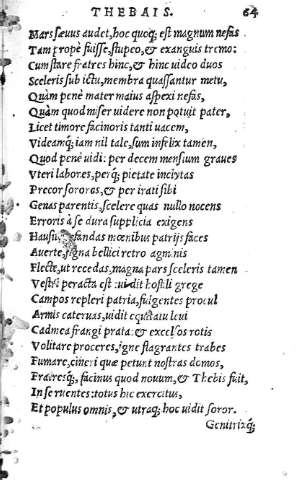 THEBAIS. 64
Mars sæuus audet, hoc quoq; est magnum nefas
Tam propè fuisse, stupeo, & exanguis tremo:
Cum stare fratres hinc, & hinc uideo duter
Sceleris sub ictu, membra quassantur metu,
Quàm penè mater maius aspexi nefas,
Quàm quod miser uidere non potuit pater,
Licet timore facinoris tanti uacem,
Videamq; iam nil tale, sum infelix tamen,
Quod penè uidi: per decem mensium graues
Vteri labores, perq; pietatem inclytas
Precor sorores, & per irati sibi
Genas parentis, scelere quas nullo nocens
Erroris à se dura supplicia exigens
Hausit, nefandas mœnibus patrijs faces
Auerte, signa bellici retro agminis
Flecte, ut recedas, magna pars sceleris tamen
Vestri peracta est: uidit hostili grege
Campos repleri patria, fulgentes procul
Armis cateruas, uidit equitatu leui
Cadmea frangi prata: & excelsos rotis
Volitare proceres, igne flagrantes trabes
Fumare, cineri quæ petunt nostras domos,
Fratresq́;, facinus quod nouum, & Thebis fuit,
In se ruentes: totus hic exercitus,
Et populus omnis, & utraq; hoc uidit soror.
Genitrixq́;